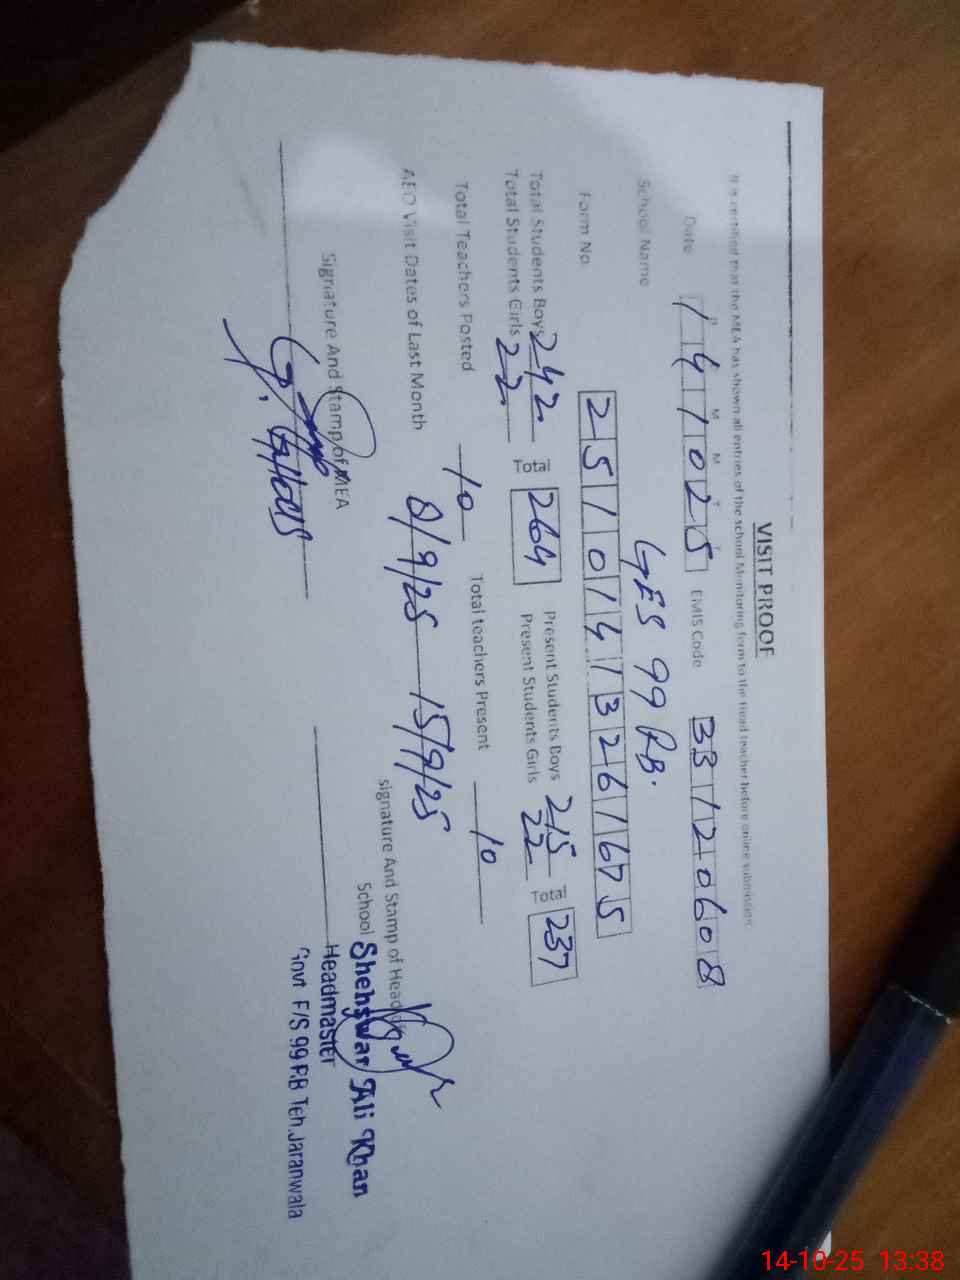 VISIT PROOF
It is certified that the MEA has shown all entries of the school Monitoring form to the Head teacher before online submission.
D M M Y Y
Date 141025 EMIS Code 33120608
School Name GES 99 RB.
Form No. 25101413261675
Total Students Boys 242 Total 264 Present Students Boys 215 Total 237
Total Students Girls 22 Present Students Girls 22
Total Teachers Posted 10 Total teachers Present 10
AEO Visit Dates of Last Month 8/9/25 15/9/25
Signature And Stamp of MEA signature And Stamp of Head
School Shehswar Ali Khan
Headmaster
Govt E/S 99 RB Teh. Jaranwala
14-10-25 13:38